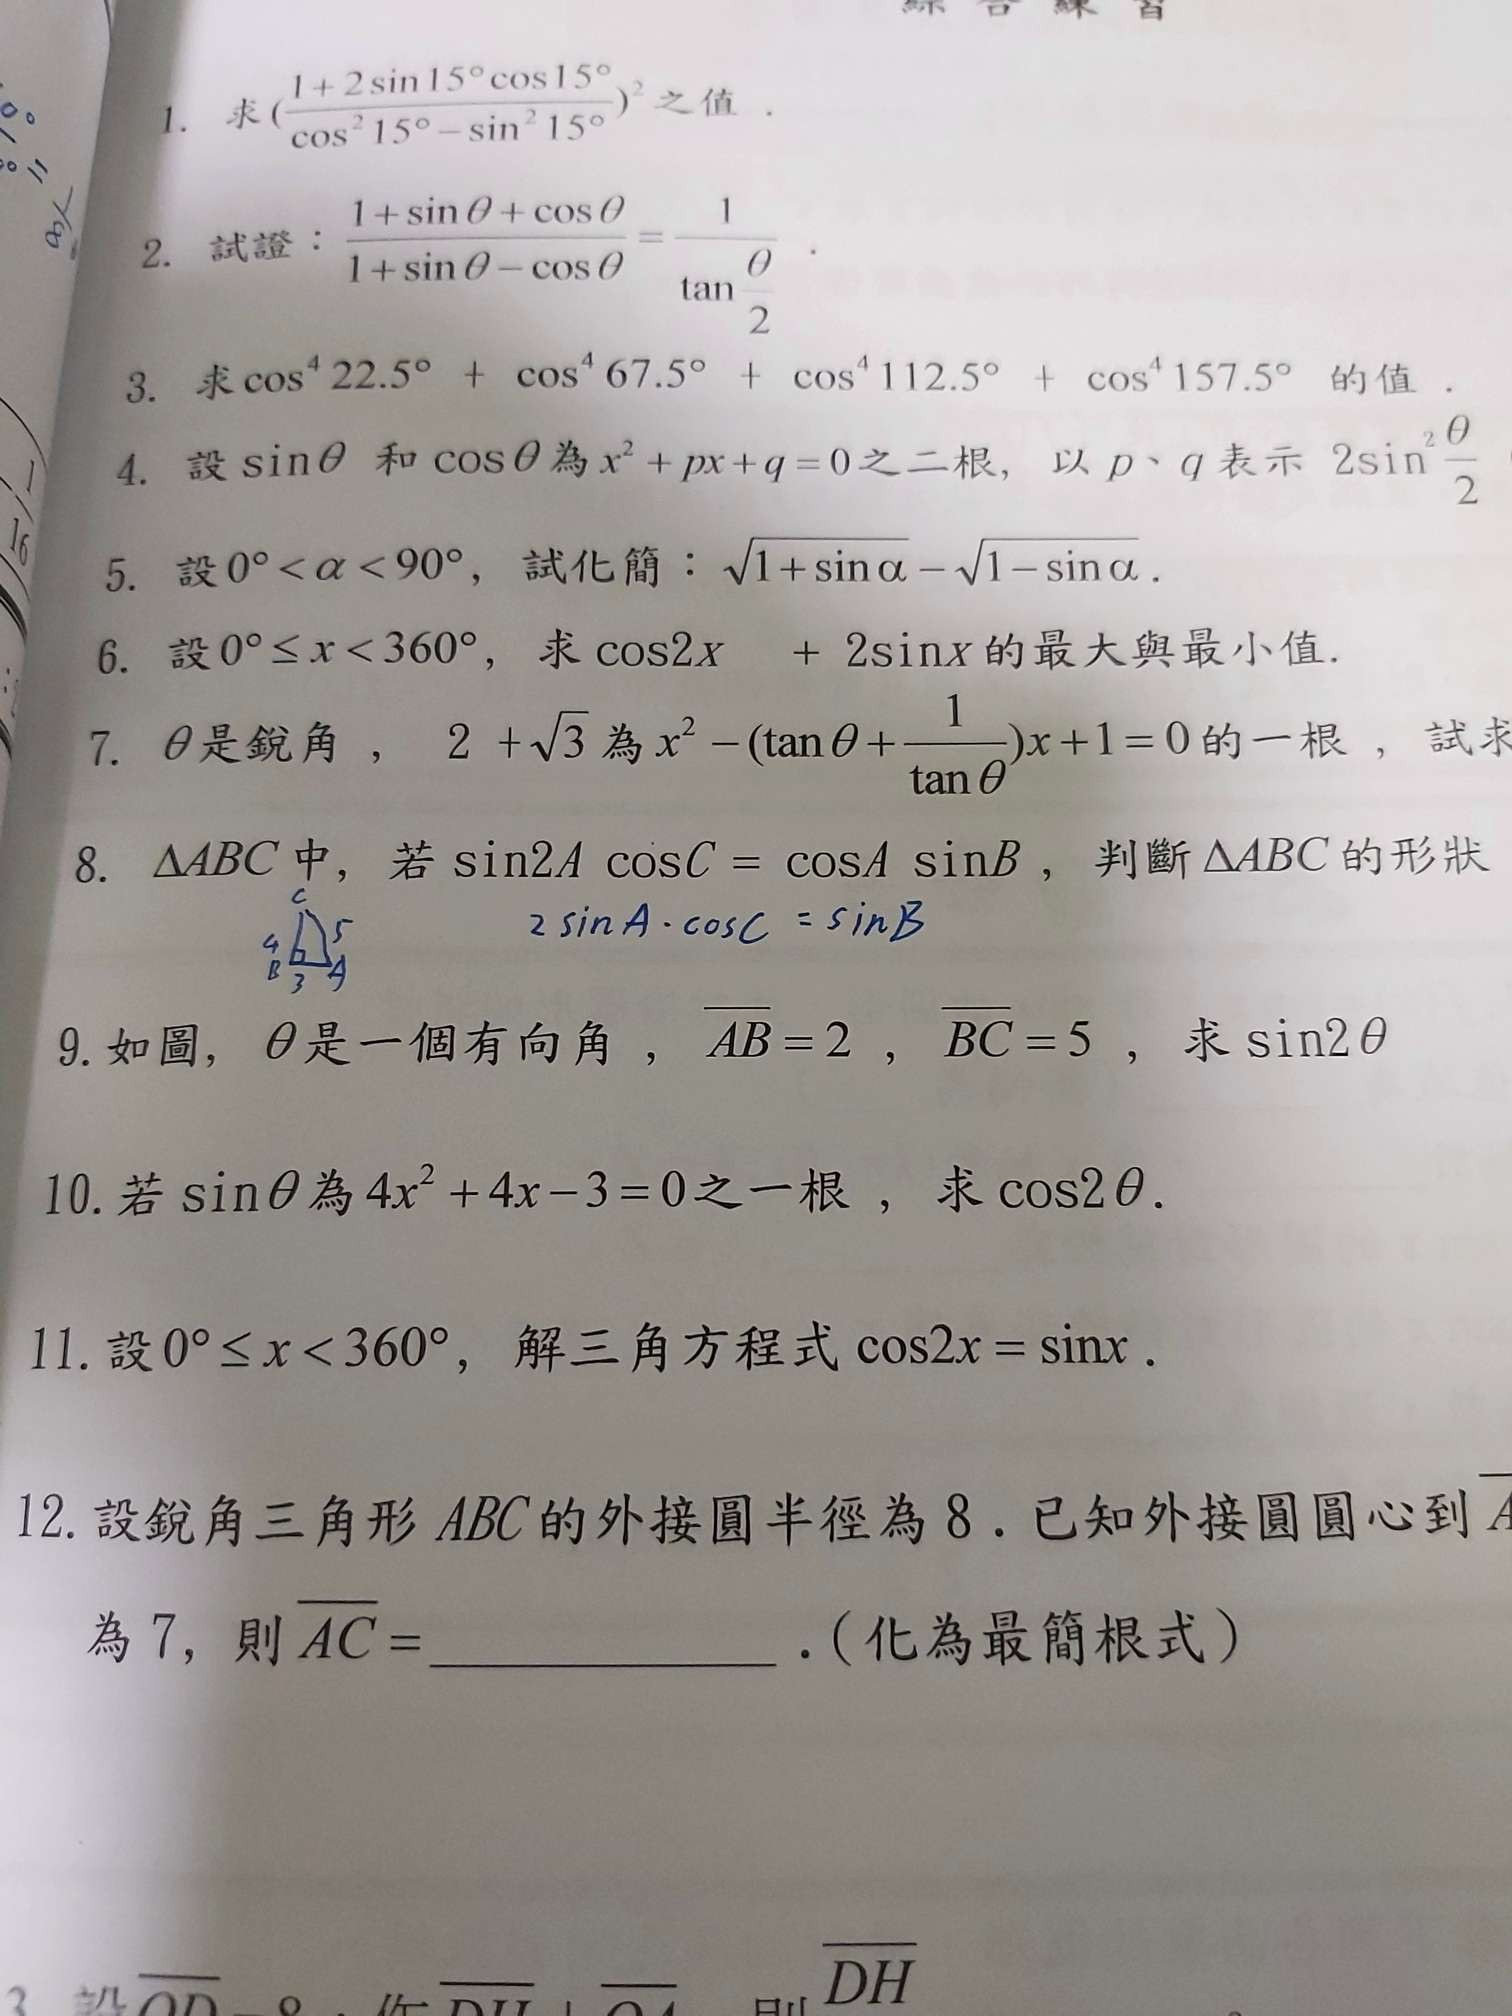 綜合練習
1. 求(\frac{1+2sin15°cos15°}{cos²15°−sin²15°})²之值.
2. 試證：\frac{1+sinθ+cosθ}{1+sinθ−cosθ}=\frac{1}{tan\frac{θ}{2}}.
3. 求cos⁴22.5° + cos⁴67.5° + cos⁴112.5° + cos⁴157.5° 的值.
4. 設 sinθ 和 cosθ為x²+px+q=0之二根，以p、q表示 2sin²\frac{θ}{2}
5. 設0°<α<90°，試化簡：√(1+sinα)−√(1−sinα).
6. 設0°≤x<360°，求 cos2x + 2sinx的最大與最小值.
7. θ是銳角， 2 +√3 為x²−(tanθ+\frac{1}{tanθ})x+1=0的一根，試求
8. ΔABC中，若 sin2A cosC = cosA sinB，判斷ΔABC的形狀
C
4 5
B 3 A
2 sinA·cosC = sinB
9. 如圖，θ是一個有向角，\overline{AB}=2，\overline{BC}=5，求 sin2θ
10. 若 sinθ為4x²+4x−3=0之一根，求 cos2θ.
11. 設0°≤x<360°，解三角方程式 cos2x = sinx.
12. 設銳角三角形 ABC的外接圓半徑為 8 . 已知外接圓圓心到
為 7，則\overline{AC}=__________ .(化為最簡根式)